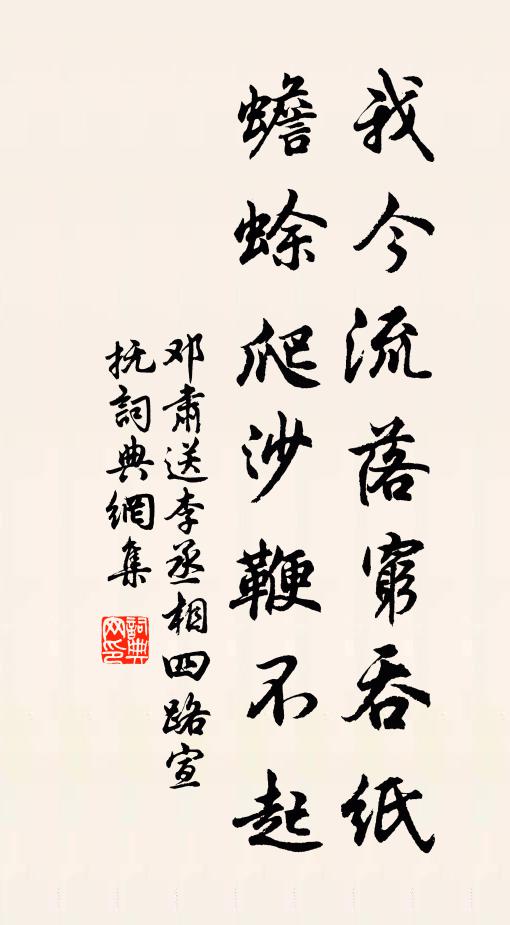 我今流落窮吞紙
蟾蜍爬沙鞭不起
邓肅送李丞相四路宣
抚詞典網集
詞典
网印